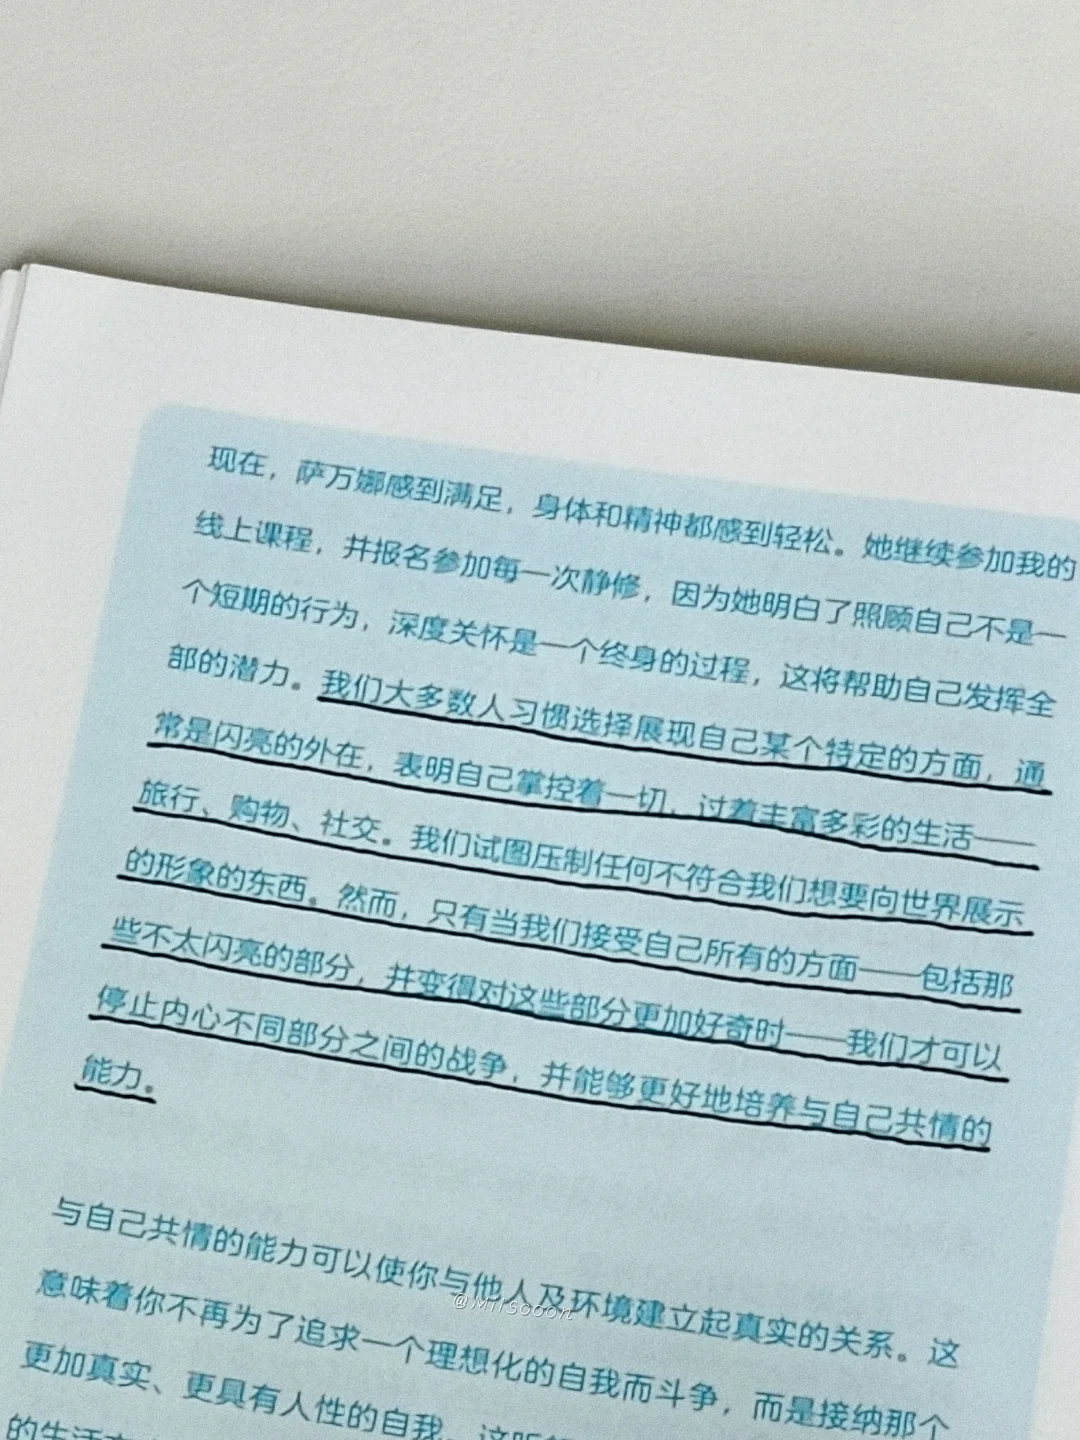 现在，萨万娜感到满足，身体和精神都感到轻松。她继续参加我的
线上课程，并报名参加每一次静修，因为她明白了照顾自己不是一
个短期的行为，深度关怀是一个终身的过程，这将帮助自己发挥全
部的潜力。我们大多数人习惯选择展现自己某个特定的方面，通
常是闪亮的外在，表明自己掌控着一切，过着丰富多彩的生活——
旅行、购物、社交。我们试图压制任何不符合我们想要向世界展示
的形象的东西。然而，只有当我们接受自己所有的方面——包括那
些不太闪亮的部分，并变得对这些部分更加好奇时——我们才可以
停止内心不同部分之间的战争，并能够更好地培养与自己共情的
能力。
与自己共情的能力可以使你与他人及环境建立起真实的关系。这
@Mirsooon
意味着你不再为了追求一个理想化的自我而斗争，而是接纳那个
更加真实、更具有人性的自我。这听
的生活